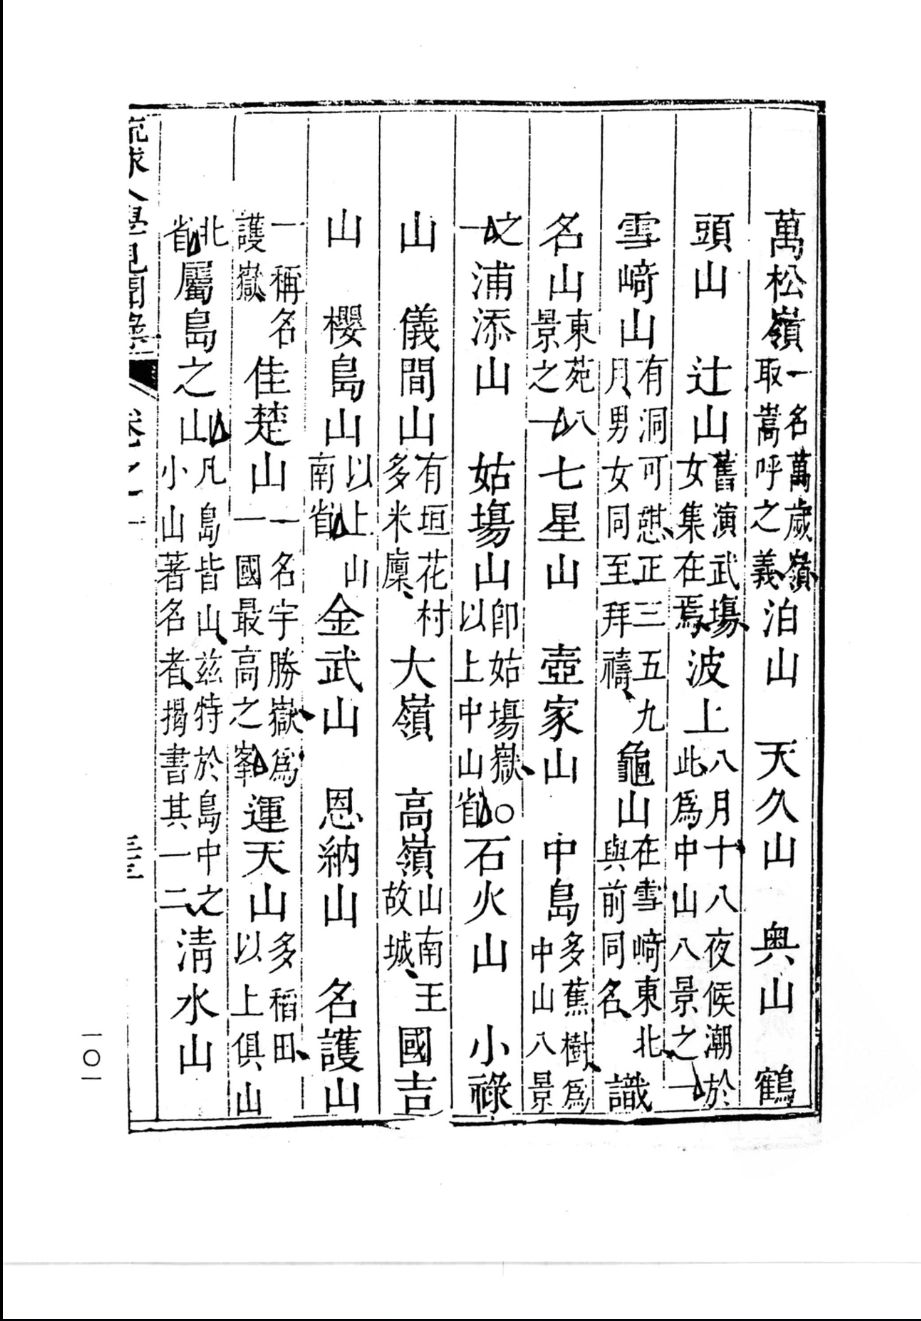 萬松嶺一名萬歲嶺取嵩呼之義泊山　天久山　奥山　鶴
頭山　辻山舊演武場女集在焉波上八月十八夜候潮於此爲中山八景之一
雪﨑山有洞可憇正三五九月男女同至拜禱龜山在雪﨑東北與前同名　識
名山東苑八景之一七星山　壺家山　中島多蕉樹爲中山八景
之一浦添山　姑場山卽姑場嶽〇以上中山省石火山　小祿
山　儀間山有垣花村多米廩大嶺　高嶺山南王故城國吉
山　櫻島山以上山南省金武山　恩納山　名護山
一稱名護嶽佳楚山一名宇勝嶽爲一國最高之峯運天山多稻田以上俱山
北省屬島之山凡島皆山兹特於島中之小山著名者揭書其一二淸水山
琉球入學見聞錄　卷之一
一〇一